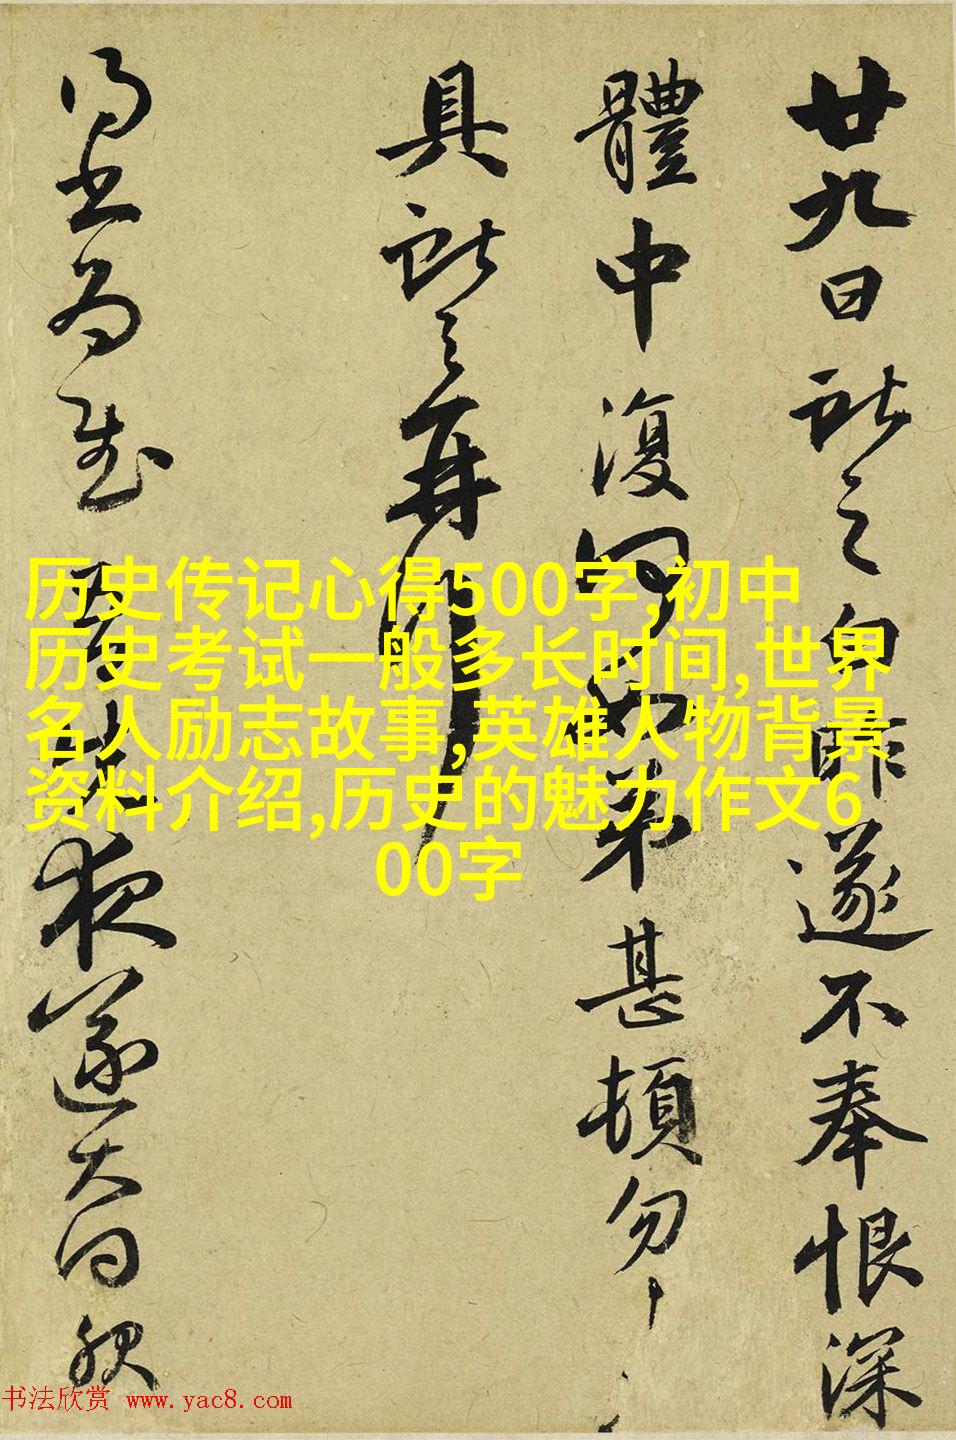 廿九日獻之白昨遂不奉恨深
體中復何如弟甚頓匆匆
具獻之再拜
得書為慰
夜遂大
历史传记心得500字,初中
历史考试一般多长时间,世界
名人励志故事,英雄人物背景
资料介绍,历史的魅力作文6
00字
书法欣赏 www.yac8.com